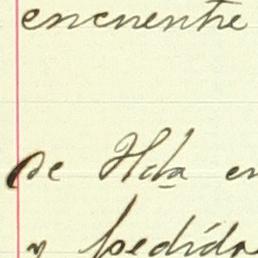 encuentre
de Hda en
y pedida